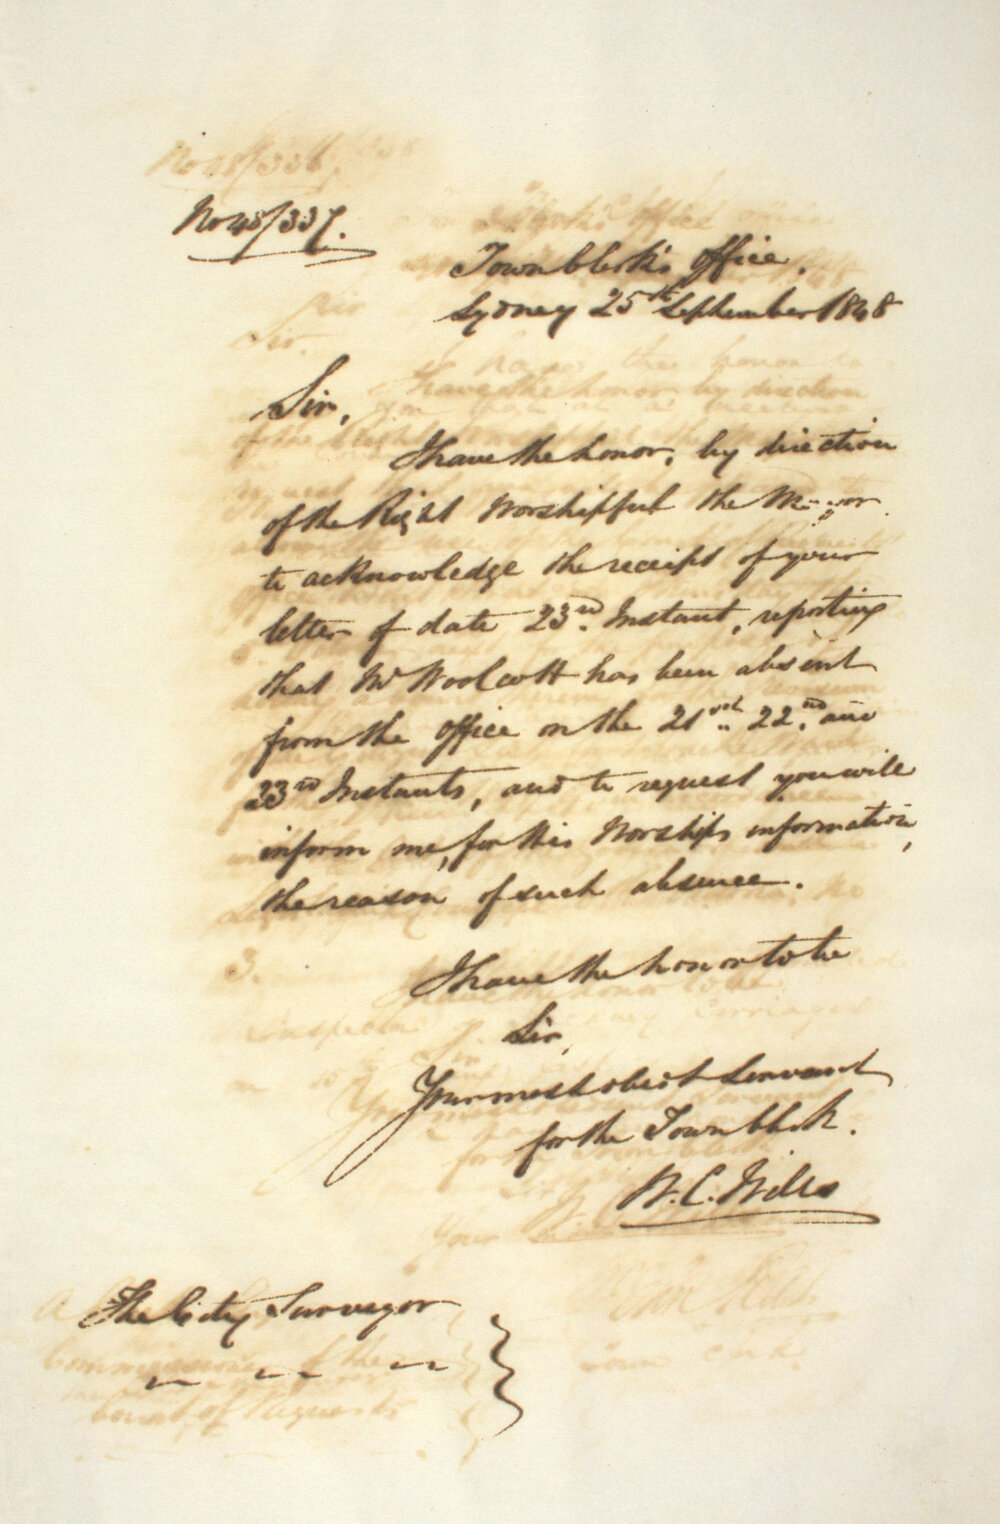 No 48/337.
Town Clerk's Office,
Sydney 25th September 1848
Sir,
I have the honor, by direction
of the Right Worshipful the Mayor
to acknowledge the receipt of your
letter of date 23rd Instant, reporting
that Mr Woolcott has been absent
from the office on the 21st 22nd and
23rd Instants, and to request you will
inform me, for His Worship's information,
the reason of such absence.
I have the honor to be
Sir,
Your most obedt Servant
for the Town Clerk.
W. C. Wills
The City Surveyor